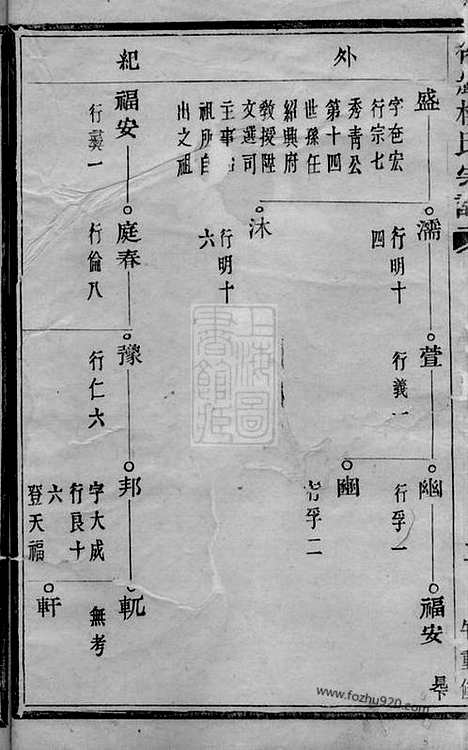 外
紀
盛
字奩宏
行宗七
秀青公
第十四
世孫任
紹興府
教授陞
文選司
主事
祖所自
出之祖
濡
行明十
四
沐
行明十
六
萱
行義一
幽
行孚一
豳
行孚二
福安
福安
行彝一
庭春
行倫八
豫
行仁六
邦
字大成
行良十
六
登天福
軏
無考
軒
上海圖書館藏
氏宗譜
重修
www.fozhu920.com